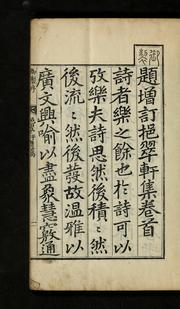 御製
題增訂挹翠軒集卷首
詩者樂之餘也於詩可以
攷樂夫詩思然後積積然
後流流然後發故溫雅以
廣文興喻以盡象慧竅通